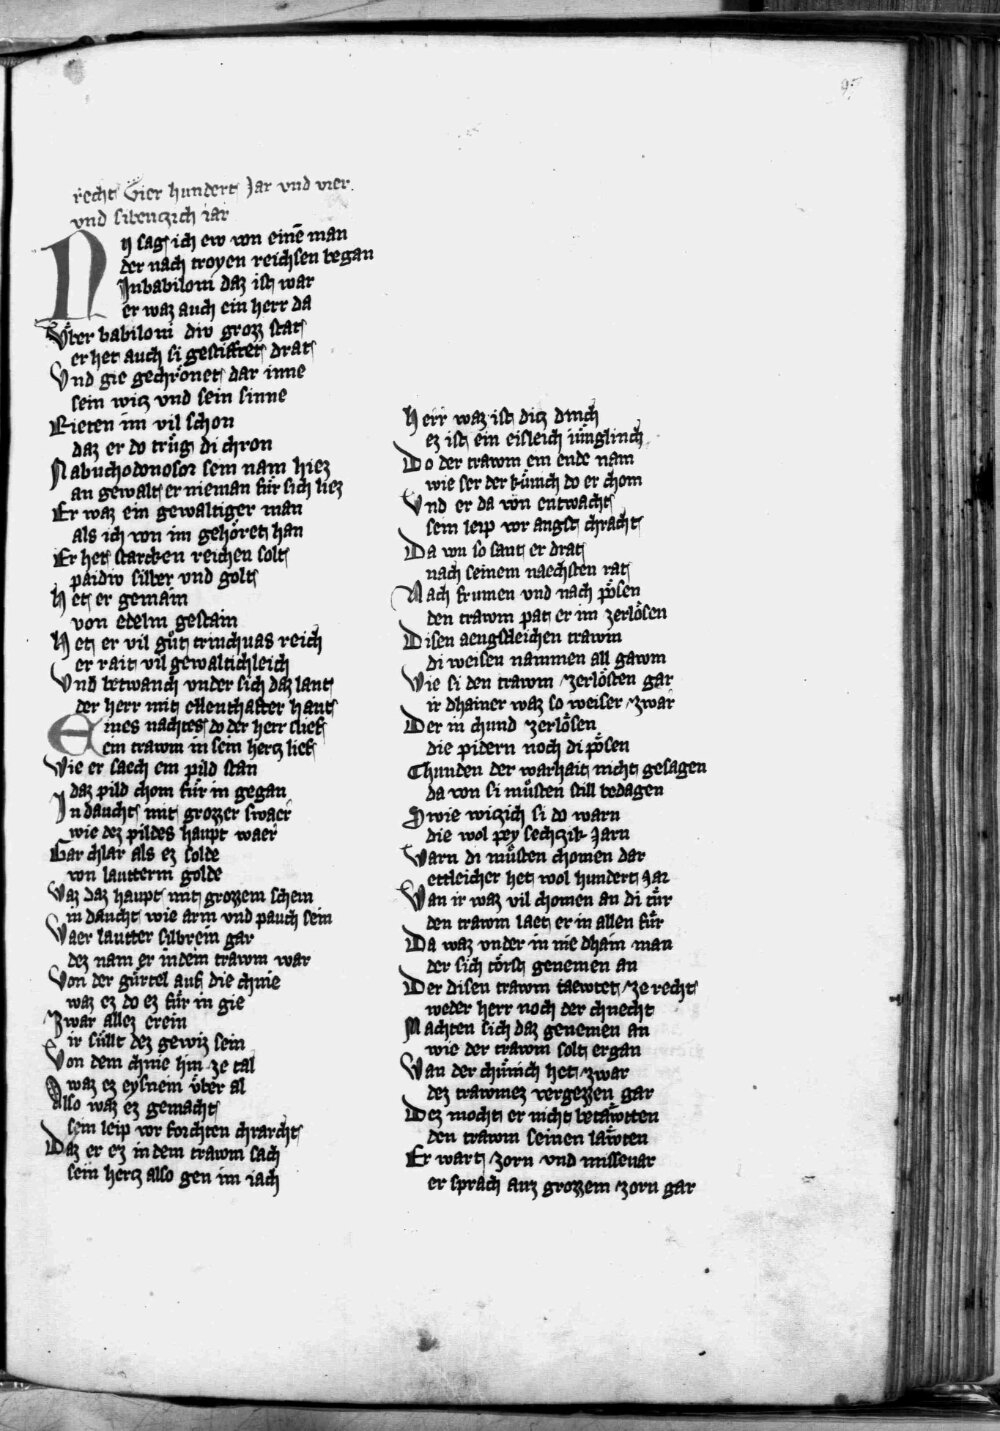 97
recht Vier hundert Jar vnd vier
vnd sibenczich iar
Nv sag ich ew von eine̅ man
der nach troyen reichsen began
In babiloni daz ist war
er waz auch ein herr da
Vͤber babiloni div grozz stat
er het auch si gestifftet drat
Vnd gie gechroͤnet dar inne
sein wicz vnd sein sinne
Rieten im vil schon
daz er do truͤg di chron
Nabuchodonosor sein nam hiez
an gewalt er nieman fuͤr sich liez
Er waz ein gewaltiger man
als ich von im gehoͤret han
Er het starcken reichen solt
paidiv silber vnd golt
Het er gemain
von edelm gestain
Het er vil guͤt trinchuas reich
er rait vil gewaltichleich
Vnd betwanch vnder sich daz lant
der herr mit ellenthafter hant
Eines nachtes do der herr slief
ein trawm in sein hercz lief
Wie er saech ein pild stan
daz pild chom fuͤr in gegan
In daucht mit grozzer swaer
wie dez pildes haupt waer
Gar chlar als ez solde
von lautterm golde
Waz daz haupt mit grozem schein
in daucht wie arm vnd pauch sein
Waer lautter silbrein gar
dez nam er in dem trawm war
Von der guͤrtel auf die chnie
waz ez do ez fuͤr in gie
Zwar allez erein
ir suͤllt dez gewiz sein
Von dem chnie hin ze tal
waz ez eysnein vͤber al
Also waz ez gemacht
sein leip vor forchten chracht
Daz er ez in dem trawm sach
sein hercz also gen im iach
Herr waz ist dicz dinch
ez ist ein eisleich iuͤnglinch
Do der trawm ein ende nam
wie ser der kuͤnich do er chom
Vnd er da von entwacht
sein leip vor angst chracht
Da von so sant er drat
nach seinem naechsten rat
Nach frumen vnd nach poͤsen
den trawm pat er im zerloͤsen
Disen aengstleichen trawm
di weisen nammen all gawm
Wie si den trawm zerloͤsten gar
ir dhainer waz so weiser zwar
Der in chund zerloͤsen
die pidern noch di poͤsen
Chunden der warhait nicht gesagen
da von si muͤsten still bedagen
Swie wiczich si do warn
die wol pey sechczik Jarn
Warn di muͤsten chomen dar
ettleicher het wol hundert Jar
Wan ir waz vil chomen an di tuͤr
den trawm laet er in allen fuͤr
Da waz vnder in nie dhain man
der sich toͤrst genemen an
Der disen trawm taewtet ze recht
weder herr noch der chnecht
Machten sich daz genemen an
wie der trawm solt ergan
Wan der chuͤnich het zwar
dez trawmez vergezzen gar
Dez mocht er nicht betaͤwtten
den trawm seinen laͤwten
Er wart zorn vnd missevar
er sprach auz grozzem zorn gar